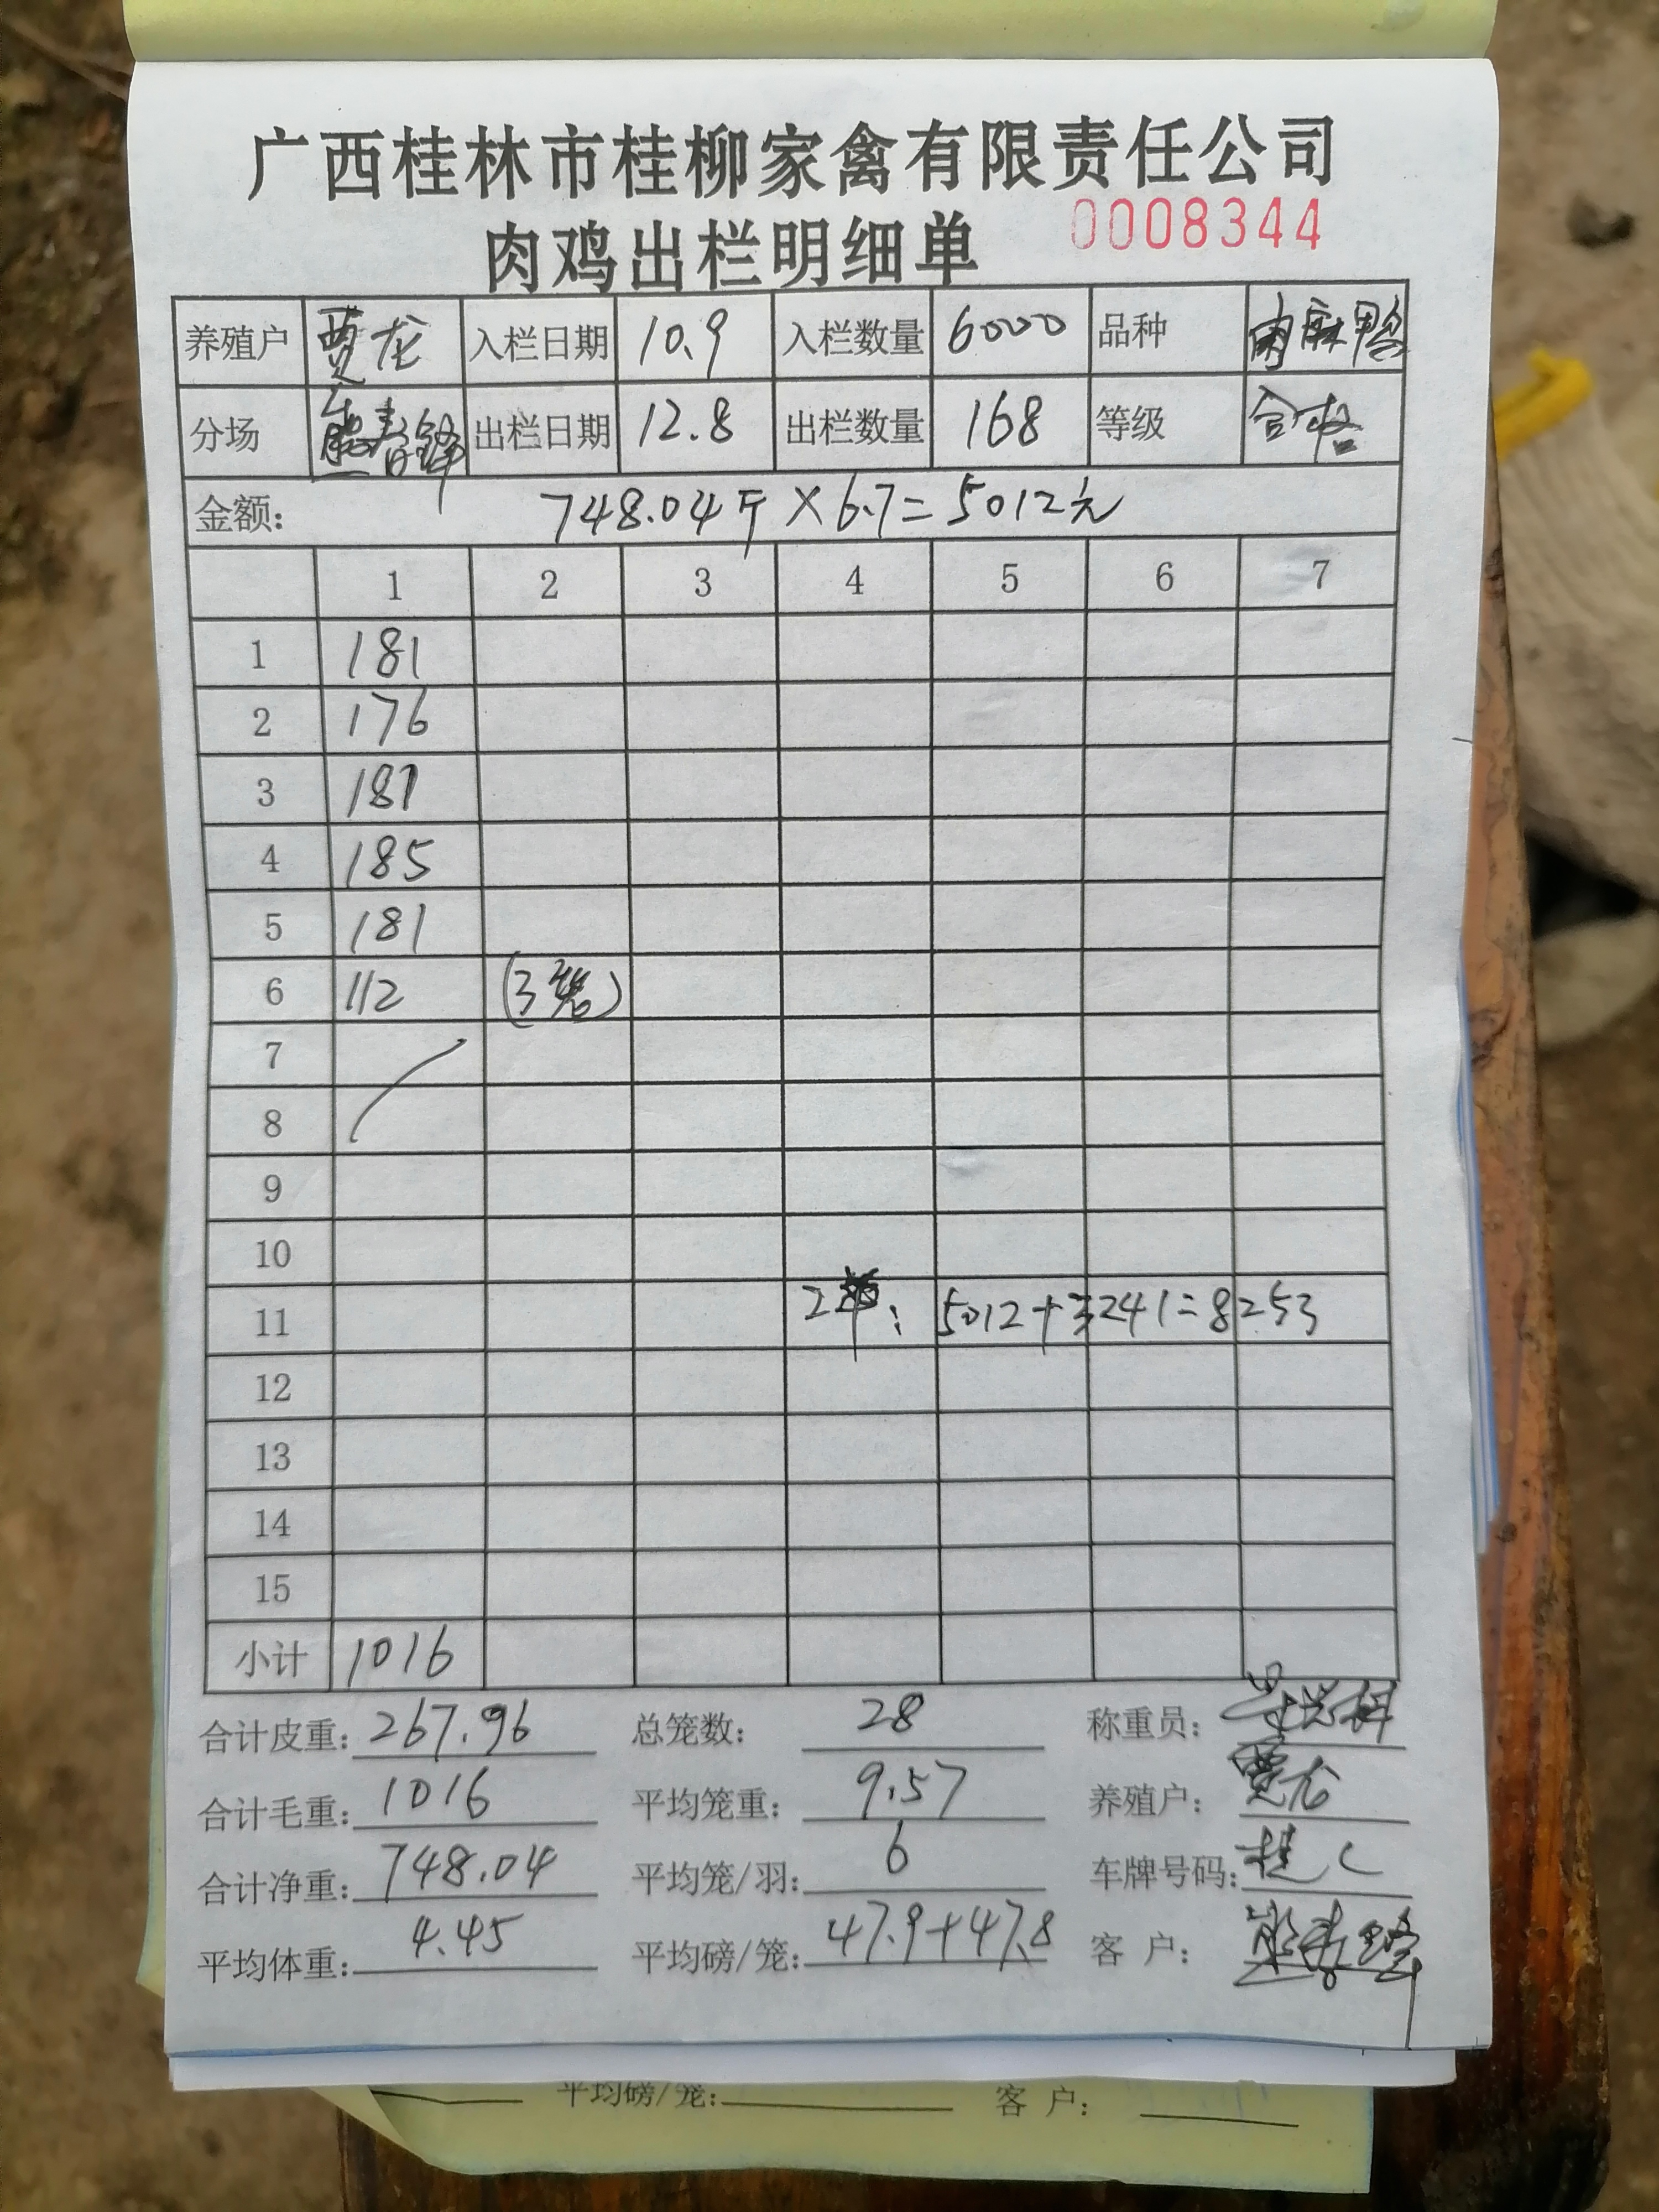 广西桂林市桂柳家禽有限责任公司
肉鸡出栏明细单 0008344
养殖户 贾龙 入栏日期 10.9 入栏数量 6000 品种 肉麻鸭
分场 熊春锋 出栏日期 12.8 出栏数量 168 等级 合格
金额: 748.04斤×6.7=5012元
1 2 3 4 5 6 7
1 181
2 176
3 181
4 185
5 181
6 112 (3笼)
7
8
9
10
11 2单: 5012+3241=8253
12
13
14
15
小计 1016
合计皮重: 267.96 总笼数: 28 称重员:
合计毛重: 1016 平均笼重: 9.57 养殖户: 贾龙
合计净重: 748.04 平均笼/羽: 6 车牌号码: 桂C
平均体重: 4.45 平均磅/笼: 47.9+47.8 客 户: 熊春锋
平均磅/笼: 客 户: